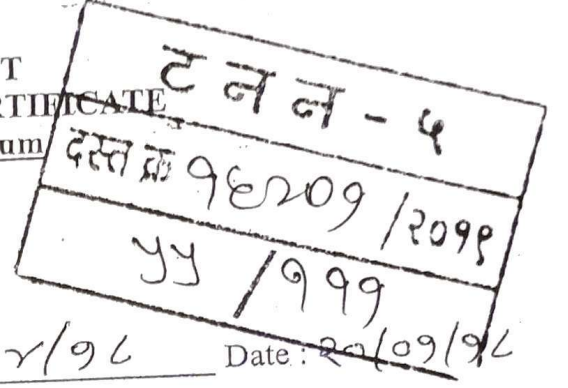 T
TIFICATE
ट न न - ५
um
दस्त क्र १६२०१ /२०१९
५५ / १११
/१८ Date : /०१/१८